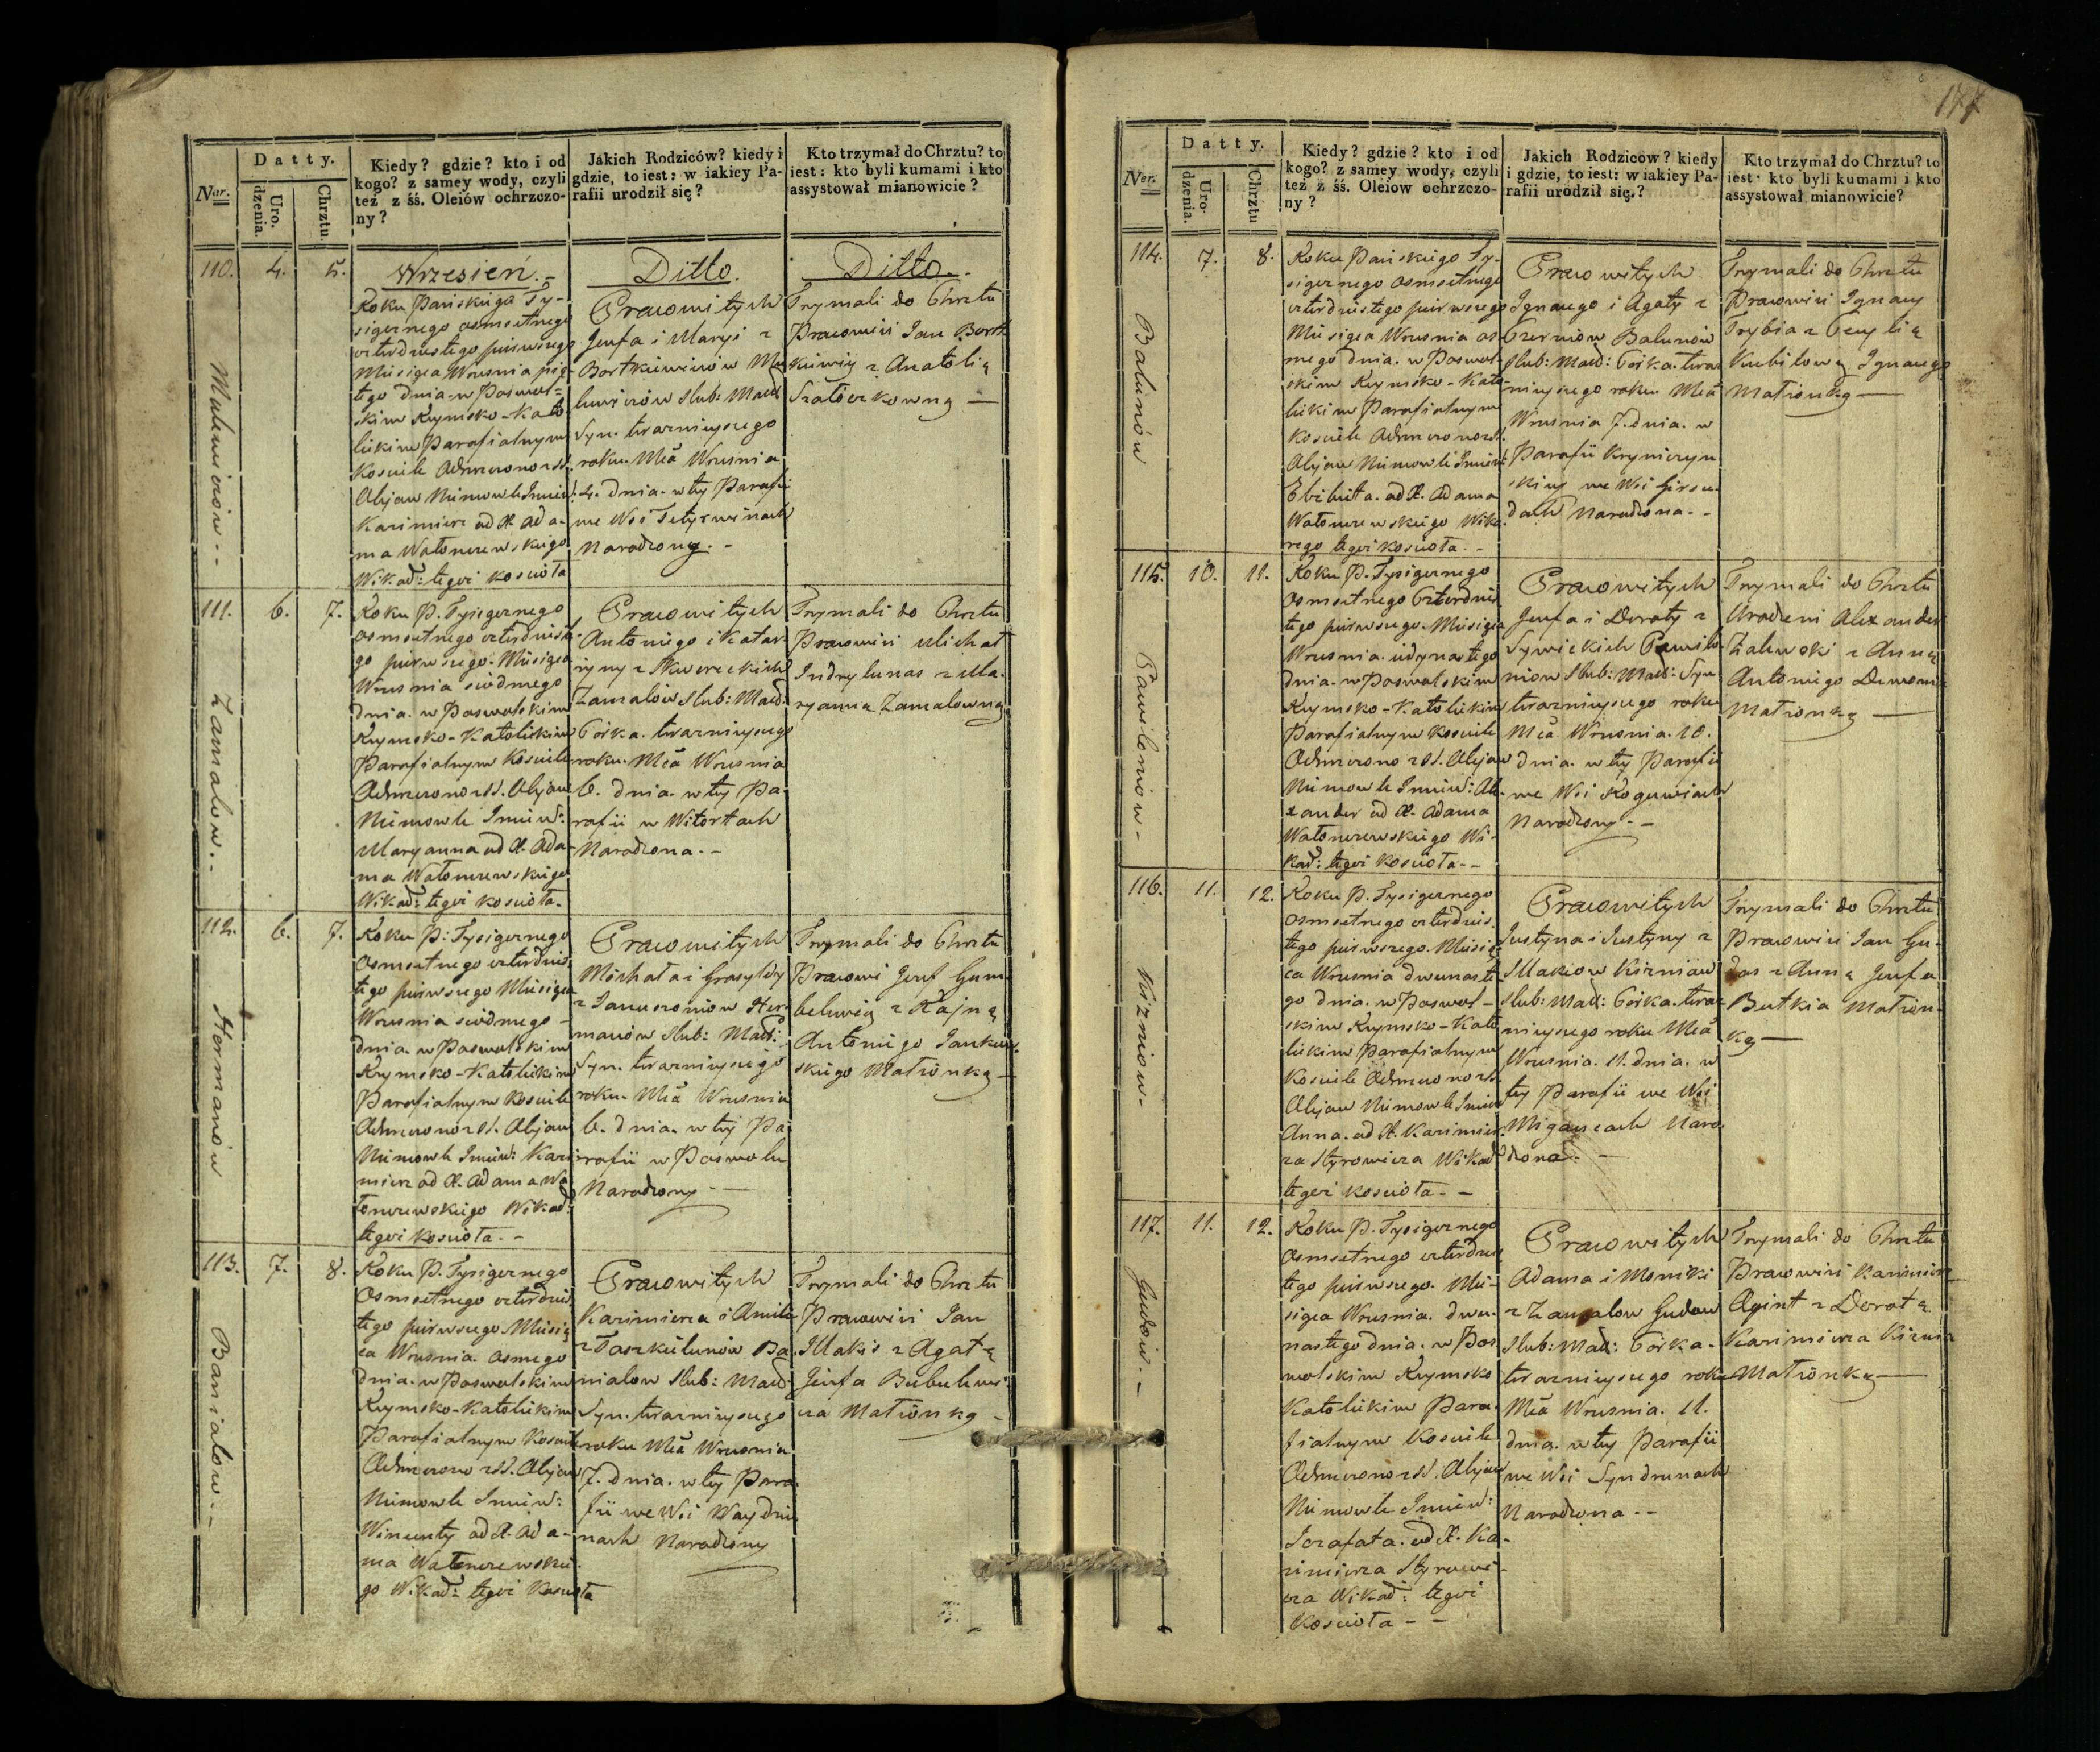 Datty.
Kiedy? gdzie? kto i od
kogo? z samey wody, czyli
też z śś. Oleiów ochrzczo-
ny?
Jakich Rodziców? kiedy i
gdzie, to iest: w iakiey Pa-
rafii urodził się?
Kto trzymał do Chrztu? to
iest: kto byli kumami i kto
assystował mianowicie?
Ner.
Uro.
dzenia.
Chrztu.
110. 4. 5.
Wrzesień.-
Roku Pańskiego Ty-
siącznego osmsetnego
czterdziestego pierwszego
Miesiąca Września pią-
tego dnia w Poswol-
skim Rzymsko-Kato
lickim Parafialnym
Kosciele Ochrzczono z SS.
Olejów Niemowle Imien:
Kazimierz od X. Ada-
ma Watonczewskiego
Wikar: tegoż koscioła
Ditto.
Pracowitych
Jozefa i Maryi z
Bortkiewiczów
Slub: Małż:
Syn. teraznieyszego
roku. Mca Wrzesnia
4. dnia. w tey Parafii
we Wsi Tetyrwinach
Narodzony.-
Ditto.
Trzymali do Chrztu
Pracowici Jan Bort
kiewicz z Anatolią
111. 6. 7.
Zamalow.-
Roku P. Tysiącznego
osmsetnego czterdzieste
go pierwszego. Miesiąca
Wrzesnia siódmego
dnia. w Poswolskim
Rzymsko-Katolickim
Parafialnym Kosciele
Ochrzczono z SS. Olejów
Niemowle Imien:
Maryanna od X. Ada-
ma Watonczewskiego
Wikar: tegoż koscioła.
Pracowitych
Antoniego i Katar
zyny z Skworeckich
Zamalów Slub: Małż:
Córka. teraznieyszego
roku. Mca Wrzesnia
6. dnia. w tey Pa
rafii w Witortach
Narodzona.-
Trzymali do Chrztu
Pracowici Michał
Indrylunas z Ma-
ryanną Zamalowną
112. 6. 7.
Hermanów
Roku P: Tysiącznego
Osmsetnego czterdzies
tego pierwszego Miesiąca
Wrzesnia siódmego
dnia. w Poswolskim
Rzymsko-Katolickim
Parafialnym Kosciele
Ochrzczono z SS. Olejów
Niemowle Imien: Kazi
mierz od X. Adama Wa
tonczewskiego Wikar:
tegoż kosciola.-
Pracowitych
Michała i Grasyldy
z Januszoniów Her
manów Slub: Małż:
Syn. teraznieyszego
roku. Mca Wrzesnia
6. dnia. w tey Pa
rafii w Poswolu
Narodzony-
Trzymali do Chrztu
Pracowi Jozef Gum
belewicz z Rajną
Antoniego Jankow
skiego Małżonką-
113. 7. 8.
Banialow-
Roku P. Tysiącznego
Osmsetnego czterdzies
tego pierwszego. Miesią
ca Wrzesnia osmego
dnia. w Poswolskim
Rzymsko-Katolickim
Parafialnym Kosciele
Ochrzczono z SS. Olejów
Niemowle Imien:
Wincenty od X. Ada-
ma Watonczewskie
go Wikar: tegoż Kosciola
Pracowitych
Kazimierza i Amili
z Taszkulunów Ba
nialow Slub: Małż:
Syn. teraznieyszego
roku Mca Wrzesnia
7. dnia. w tey Para
fii we Wsi Waydzu
nach Narodzony
Trzymali do Chrztu
Pracowici Jan
Makis z Agatą
Jozefa Bubulewi
cza Małżonką-
Datty.
Kiedy? gdzie? kto i od
kogo? z samey wody, czyli
też z śś. Oleiow ochrzczo-
ny?
Jakich Rodzicow? kiedy
i gdzie, to iest: w iakiey Pa-
rafii urodził się?
Kto trzymał do Chrztu? to
iest: kto byli kumami i kto
assystował mianowicie?
Ner.
Uro.
dzenia.
Chrztu
114. 7. 8.
Balunów
Roku Pańskiego Ty-
siącznego osmsetnego
czterdziestego pierwszego
Miesiąca Wrzesnia os-
mego dnia. w Poswol-
skim Rzymsko-Kato
lickim Parafialnym
Kosciele Ochrzczono z SS.
Olejow Niemowle Imien:
Elżbieta. od X. Adama
Watonczewskiego Wika
rego tegoż kosciola.-
Pracowitych
Ignacego i Agaty z
Czerniów Balunów
Slub: Małż: Córka. teraz
nieyszego roku Mca
Wrzesnia 7. dnia. w
Parafii Kryniczyn
skiey we Wsi Girsu
dach Narodzona.-
Trzymali do Chrztu
Pracowici Ignacy
Trybia z Cecylią
Kubilową Ignacego
Małżonką-
115. 10. 11.
Pawiloniow-
Roku P. Tysiącznego
Osmsetnego Czterdzies
tego pierwszego. Miesiąca
Wrzesnia. iedynastego
dnia. w Poswolskim
Rzymsko-Katolickim
Parafialnym kosciele
Ochrzczono z SS. Olejow
Niemowle Imien: Ale-
xander od X. Adama
Watonczewskiego Wi-
kar: tegoż kosciola.-
Pracowitych
Jozefa i Doroty z
Sywickich Pawilo-
niow Slub: Małż: Syn
teraznieyszego roku
Mca Wrzesnia. 10.
dnia. w tey Parafii
we Wsi Roguwiach
Narodzony.-
Trzymali do Chrztu
Urodzeni Alexander
Zalewski z Anną
Antoniego
Małżonką-
116. 11. 12.
Kizniow-
Roku P. Tysiącznego
Osmsetnego czterdzies
tego pierwszego. Miesią
ca Wrzesnia dwunaste
go dnia. w Poswol-
skim Rzymsko-Kato
lickim Parafialnym
Kosciele Ochrzczono z SS.
Olejow Niemowle Imien:
Anna. od X. Kazimier
za Styrowicza Wikar:
tegoż kosciola.-
Pracowitych
Justyna i Justyny z
Makiow Kizniow
Slub: Małż: Córka. teraz
nieyszego roku Mca
Wrzesnia. 11. dnia. w
tey Parafii we Wsi
Migancach Naro
dzona.-
Trzymali do Chrztu
Pracowici Jan Gu-
das z Anną Jozefa
Butkia Małżon
ką-
117. 11. 12.
Gudow-
Roku P. Tysiącznego
Osmsetnego czterdzies
tego pierwszego. Mie-
siąca Wrzesnia. dwu-
nastego dnia. w Pos
wolskim Rzymsko
Katolickim Para-
fialnym Kosciele
Ochrzczono z SS. Olejow
Niemowle Imien:
Jozafata. od X. Ka-
zimierza Styrowi-
cza Wikar: tegoż
Kosciola--
Pracowitych
Adama i Moniki
z Zamalow Gudow
Slub: Małż: Córka.
teraznieyszego roku
Mca Wrzesnia. 11.
dnia. w tey Parafii
we Wsi Syndrunach
Narodzona.-
Trzymali do Chrztu
Pracowici Kazimierz
Agint z Dorotą
Kazimierza Kiznia
Małżonką-